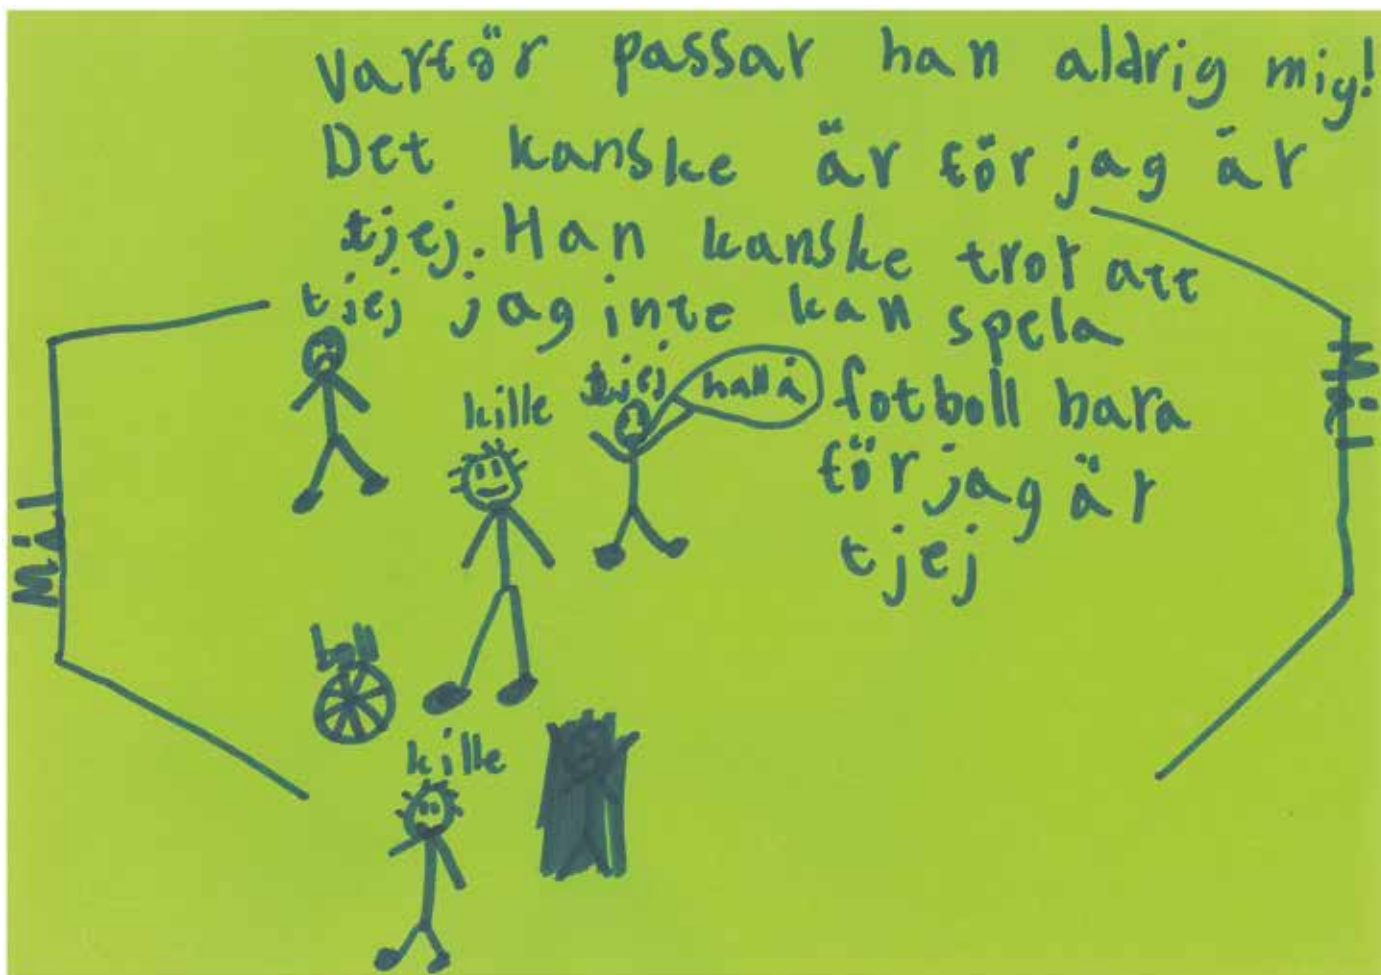 Varför passar han aldrig mig!
Det kanske är för jag är
tjej. Han kanske tror att
jag inte kan spela
fotboll bara
för jag är
tjej
tjej
kille
tjej
hallå
boll
kille
Mål
Mål